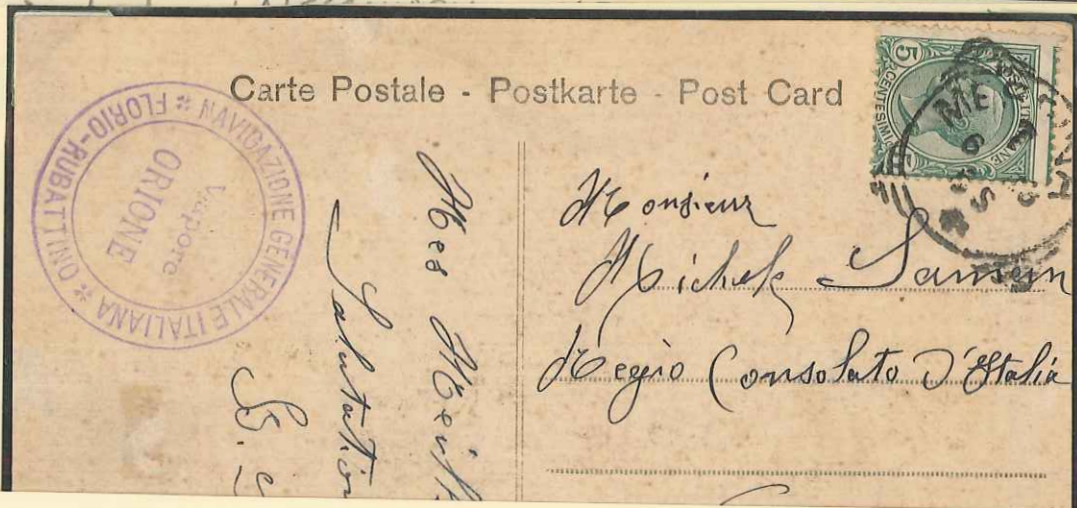 Carte Postale - Postkarte - Post Card
NAVIGAZIONE GENERALE ITALIANA * FLORIO-RUBATTINO *
Vapore
ORIONE
POSTE ITALIANE
CENTESIMI 5
Mes
Salutation
B.
Monsieur
Michel
Regio Consolato D'Italia